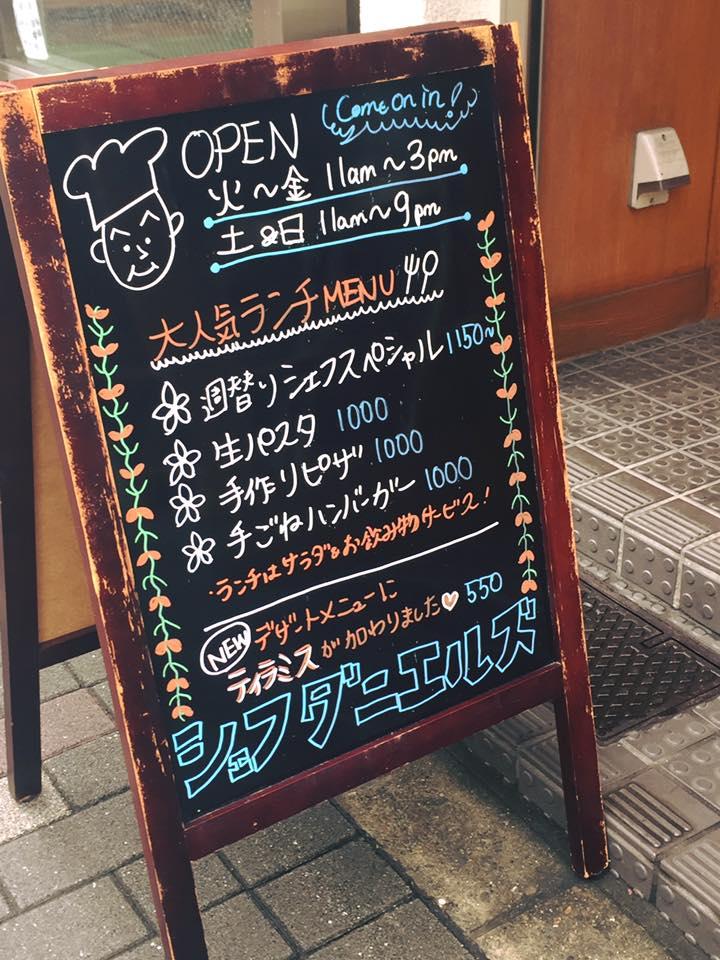 Come on in!
OPEN
火〜金 11am〜3pm
土&日 11am〜9pm
大人気ランチMENU
週替りシェフスペシャル 1150~
生パスタ 1000
手作りピザ 1000
手ごねハンバーガー 1000
・ランチはサラダ&お飲み物サービス!
NEW デザートメニューに
ティラミスが加わりました 550
シェフダニエルズ